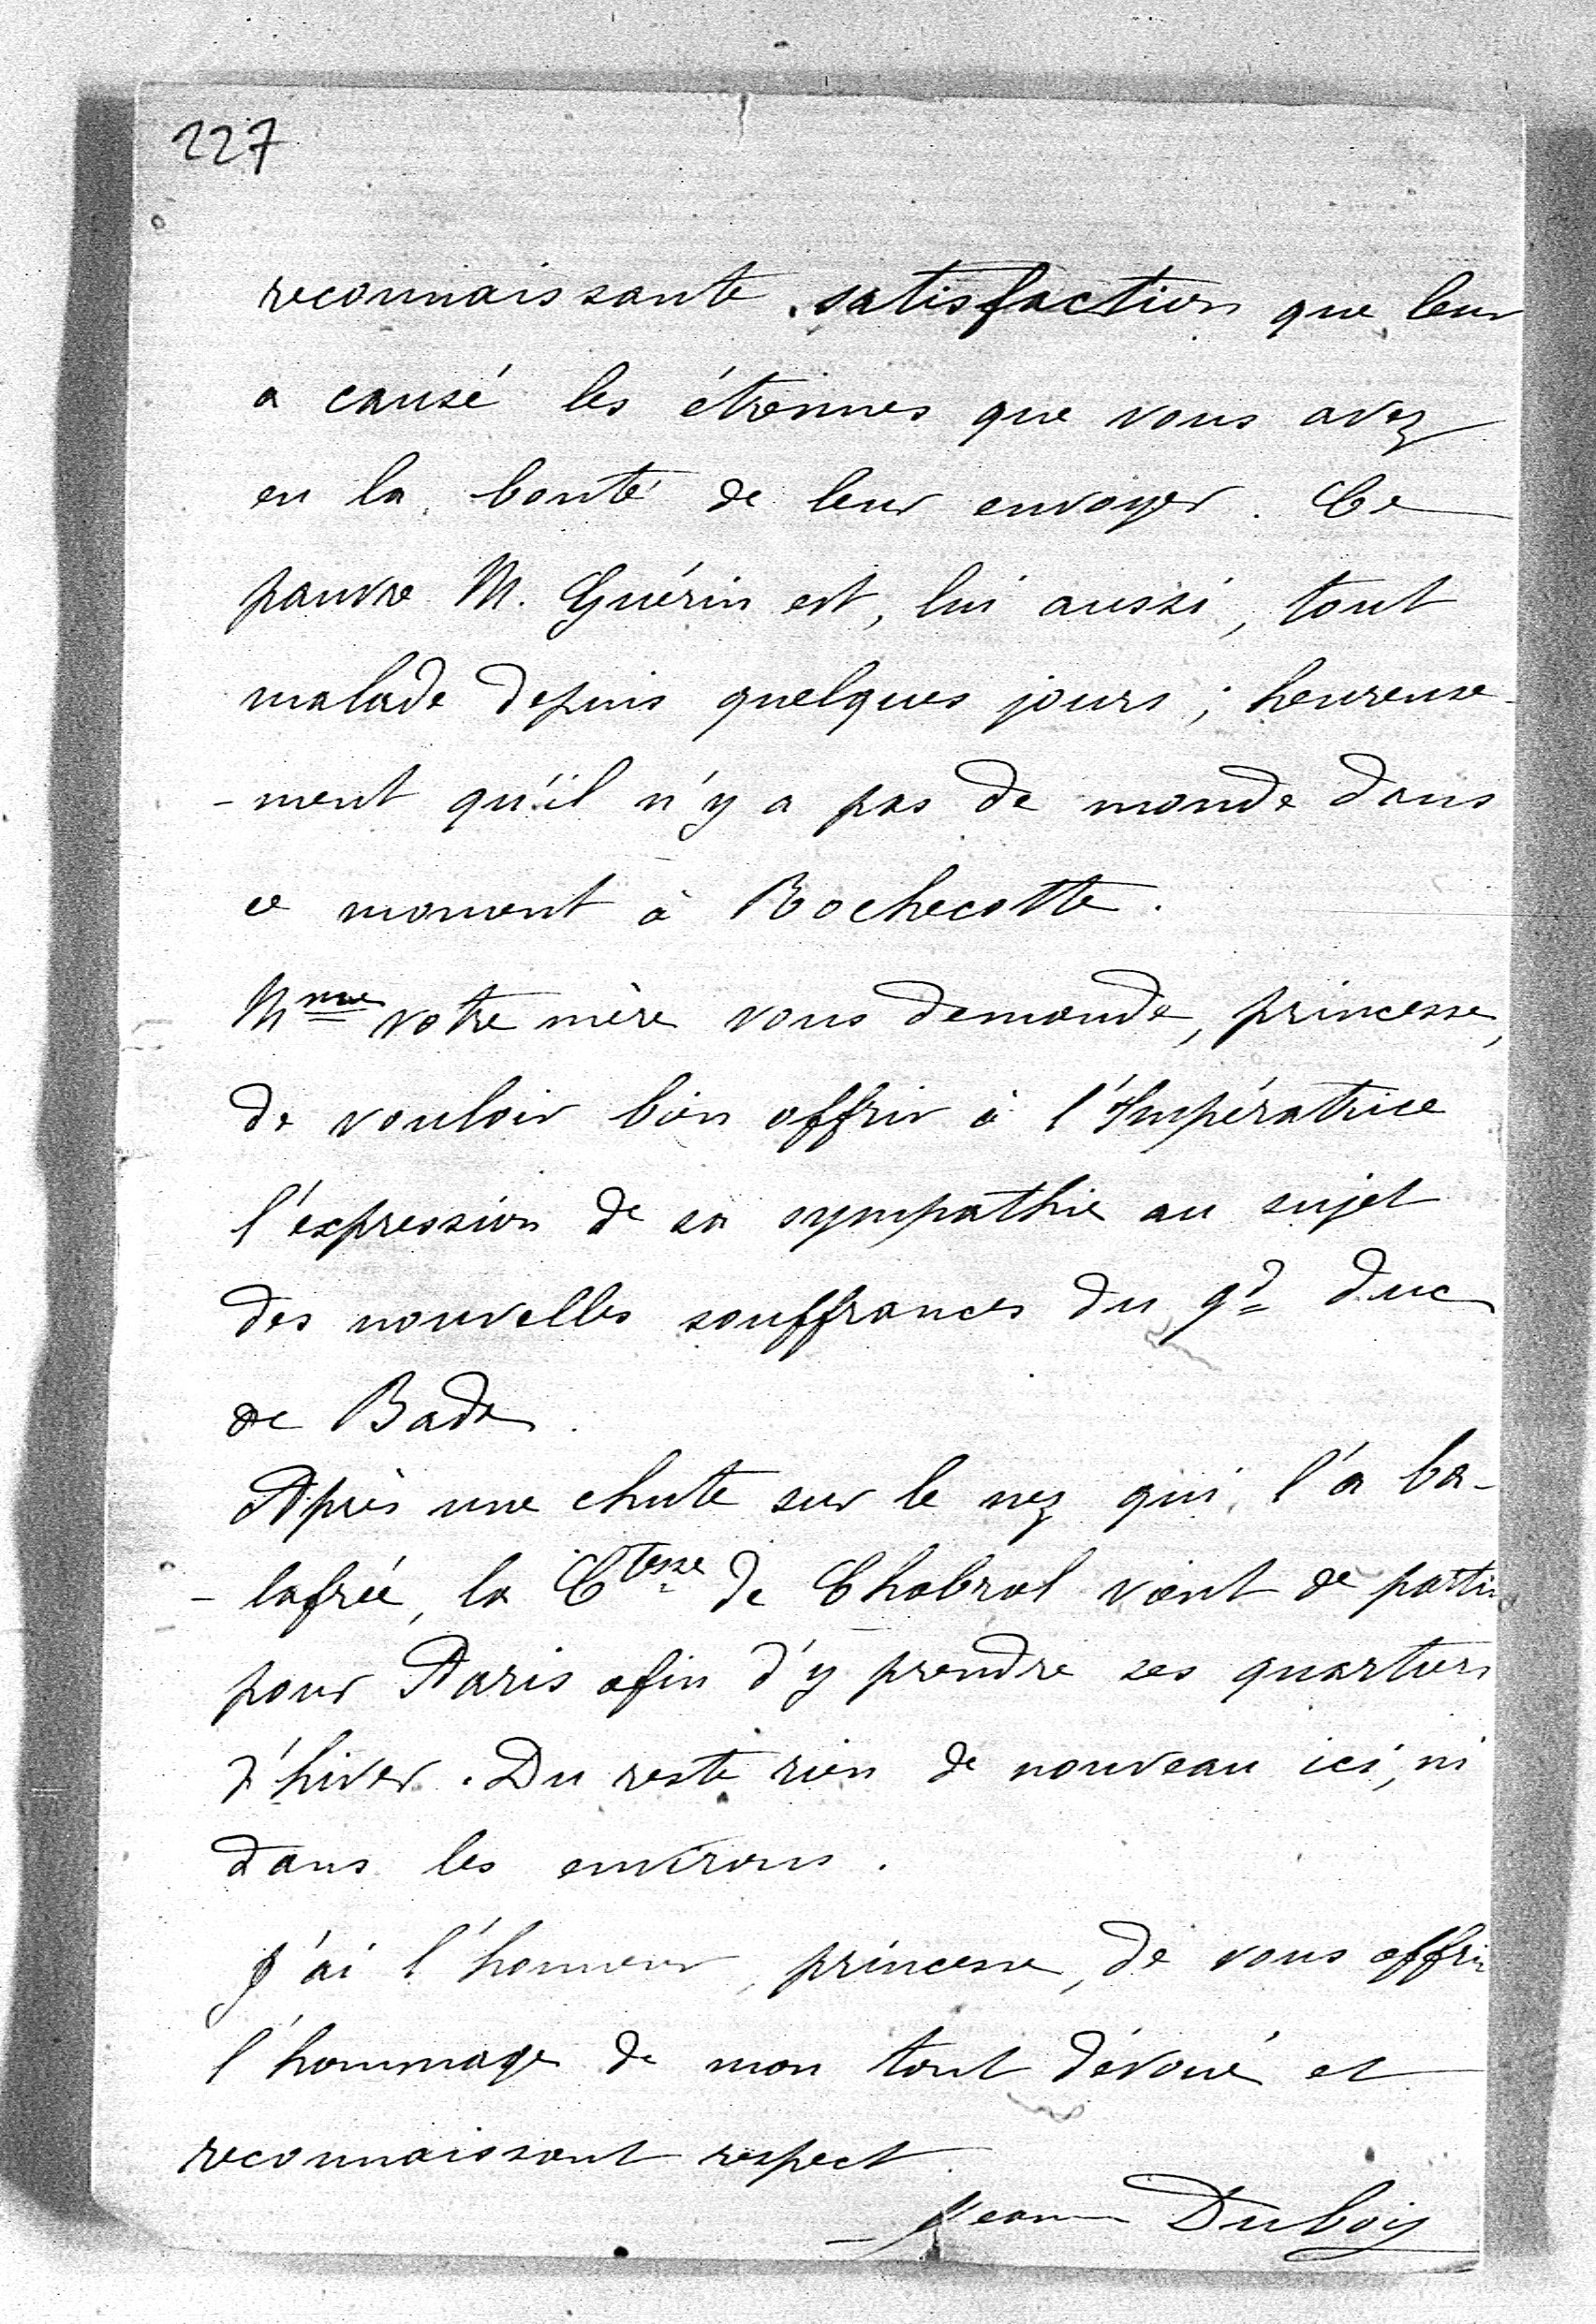 227
reconnaissante satisfaction que leur
a causé les étrennes que vous avez
eu la bonté de leur envoyer. Ce
pauvre M. Guérin est, lui aussi, tout
malade depuis quelques jours ; heureuse-
-ment qu'il n'y a pas de monde dans
ce moment à Rochecotte.
Mme votre mère vous demande, princesse,
de vouloir bien offrir à l'Impératrice
l'expression de sa sympathie au sujet
des nouvelles souffrances du gd duc
de Bade.
Après une chute sur le nez qui l'a ba-
-lafrée, la Ctesse de Chabrol vient de partir
pour Paris afin d'y prendre ses quartiers
d'hiver. Du reste rien de nouveau ici, ni
dans les environs.
J'ai l'honneur, princesse, de vous offrir
l'hommage de mon tout dévoué et
reconnaissant respect.
Jean Dubois